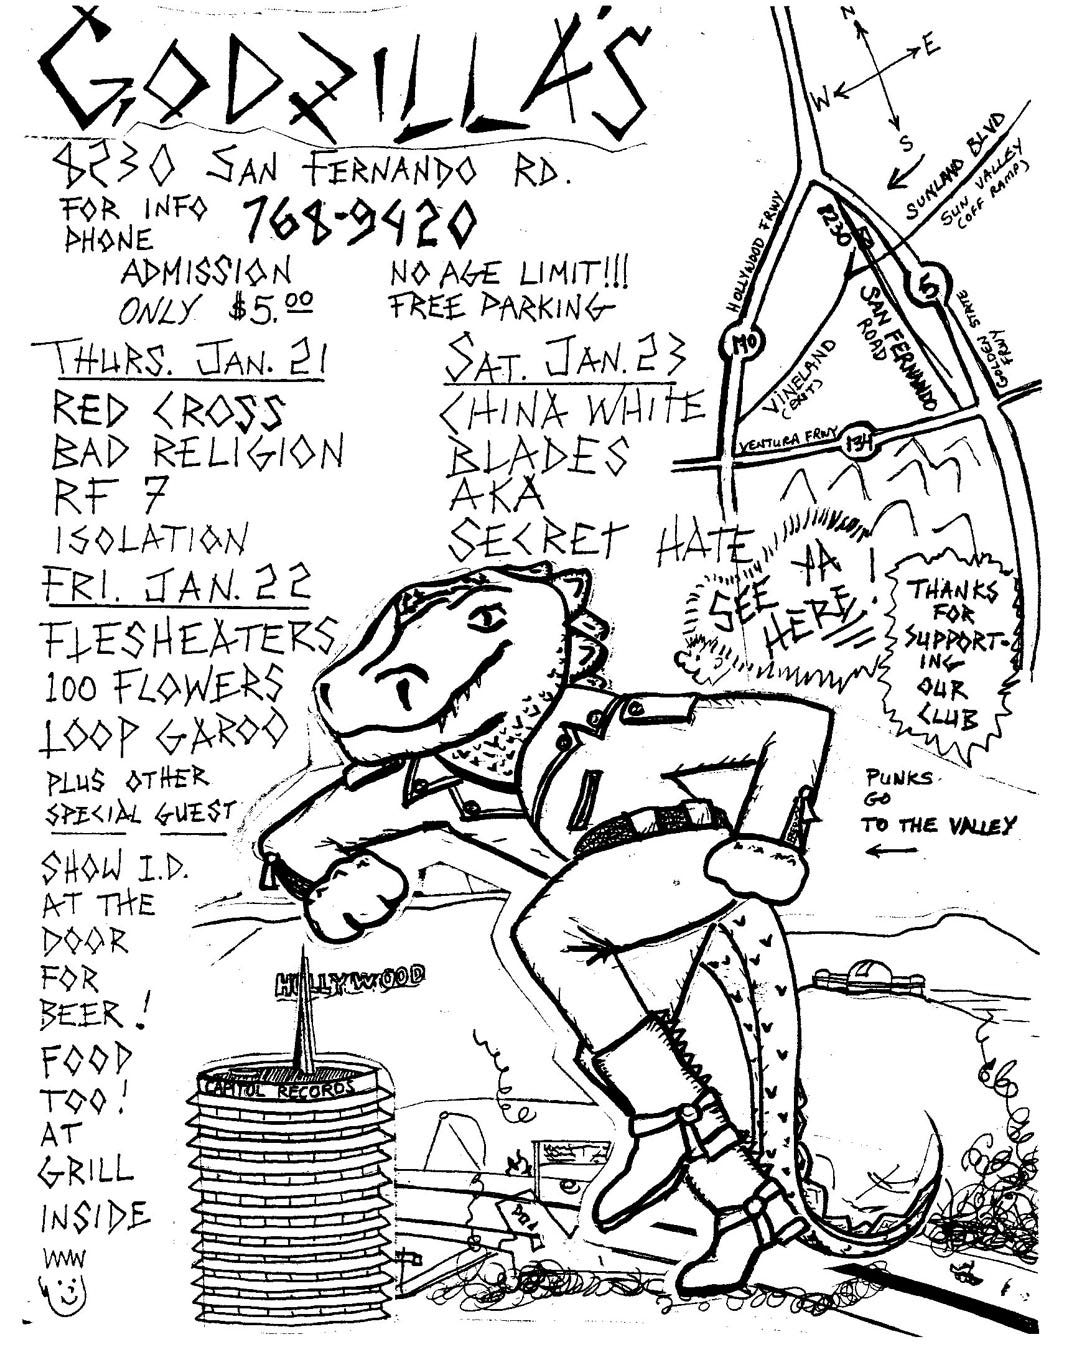 GODZILLA'S
8230 SAN FERNANDO RD.
FOR INFO
PHONE
768-9420
ADMISSION
ONLY $5.00
NO AGE LIMIT!!!
FREE PARKING
THURS. JAN. 21
RED CROSS
BAD RELIGION
RF 7
ISOLATION
FRI. JAN. 22
FLESHEATERS
100 FLOWERS
LOOP GAROO
PLUS OTHER
SPECIAL GUEST
SAT. JAN. 23
CHINA WHITE
BLADES
AKA
SECRET HATE
SHOW I.D.
AT THE
DOOR
FOR
BEER!
FOOD
TOO!
AT
GRILL
INSIDE
N
E
W
S
SUNLAND BLVD
SUN VALLEY
(OFF RAMP)
HOLLYWOOD FRWY
8230
5
GOLDEN STATE
FRWY
SAN FERNANDO
ROAD
170
VINELAND
(EXIT)
VENTURA FRWY
134
SEE YA
HERE!
THANKS
FOR
SUPPORT-
ING
OUR
CLUB
PUNKS
GO
TO THE VALLEY
HOLLYWOOD
CAPITOL RECORDS